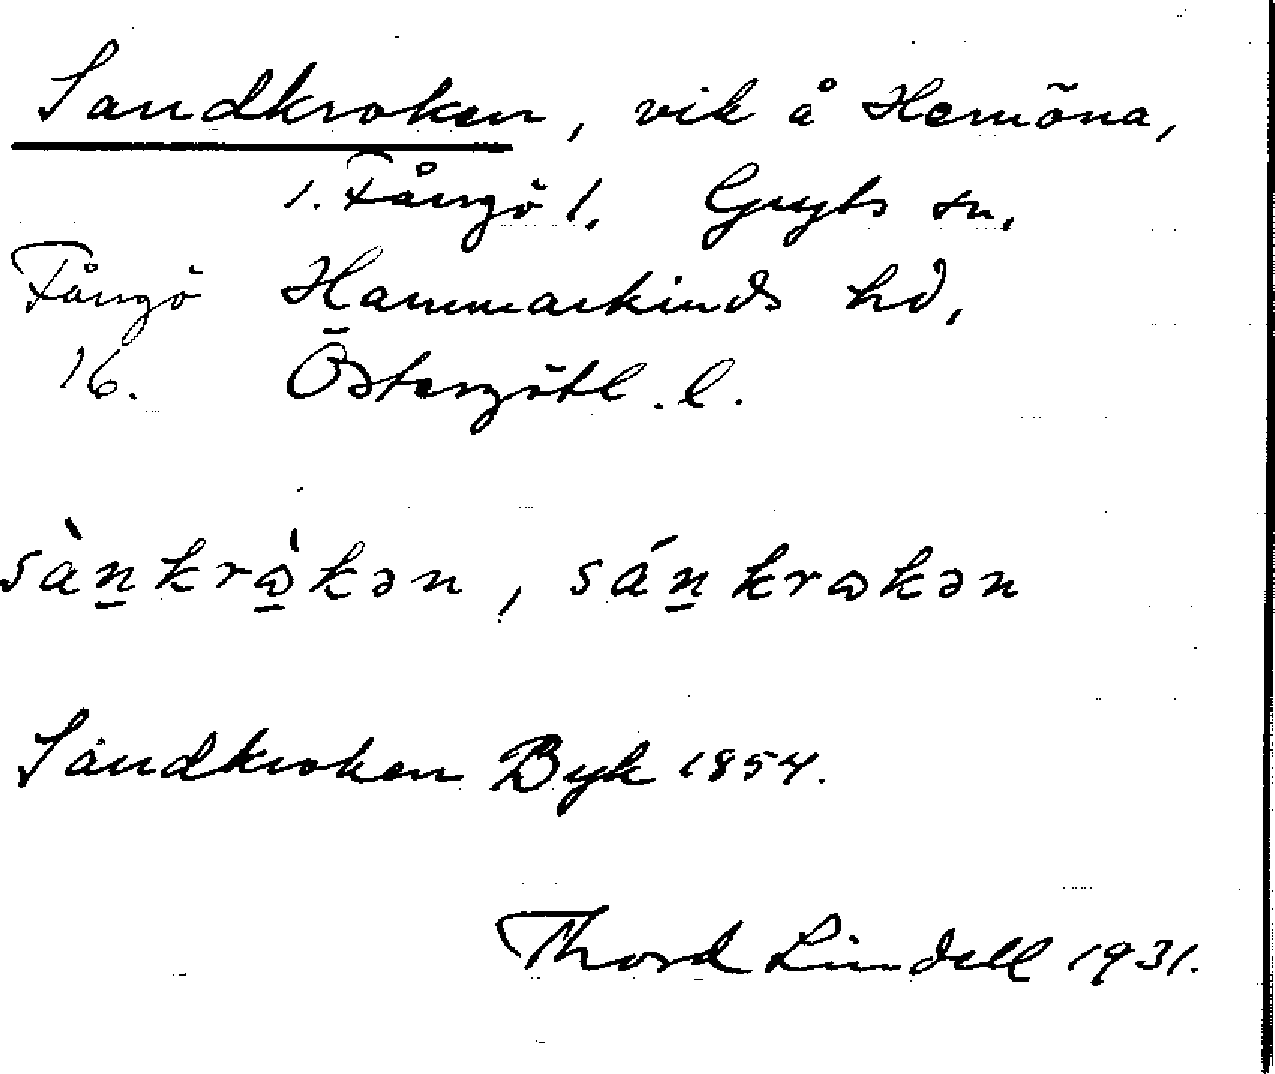 Sandkroken, vik å Hemöna,
1. Fångö l. Gryts sn,
Fångö Hammarkinds hd,
16. Östergötl. l.
sàn̠krɷ̠̀kən, sán̠krɷkən
Sandkroken Byk 1854.
Thord Lindell 1931.